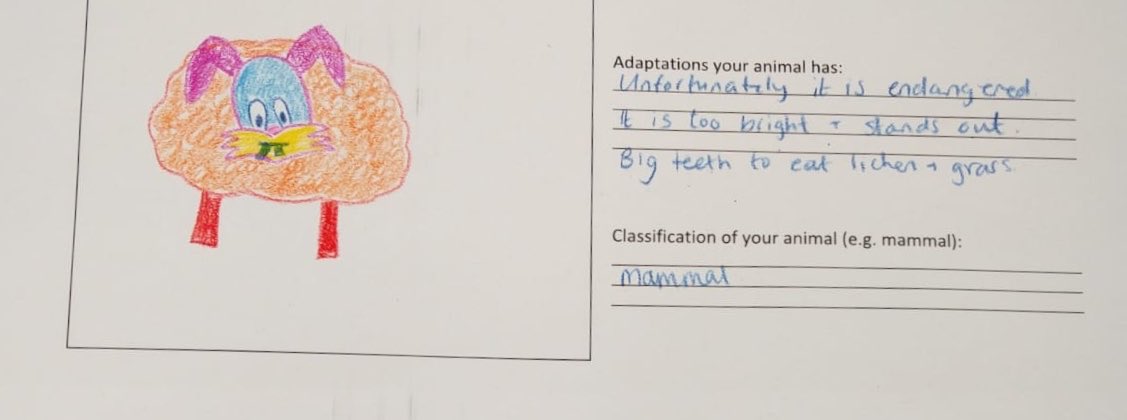 Adaptations your animal has:
Unfortunately it is endangered
It is too bright + stands out.
Big teeth to eat lichen + grass.
Classification of your animal (e.g. mammal):
mammal